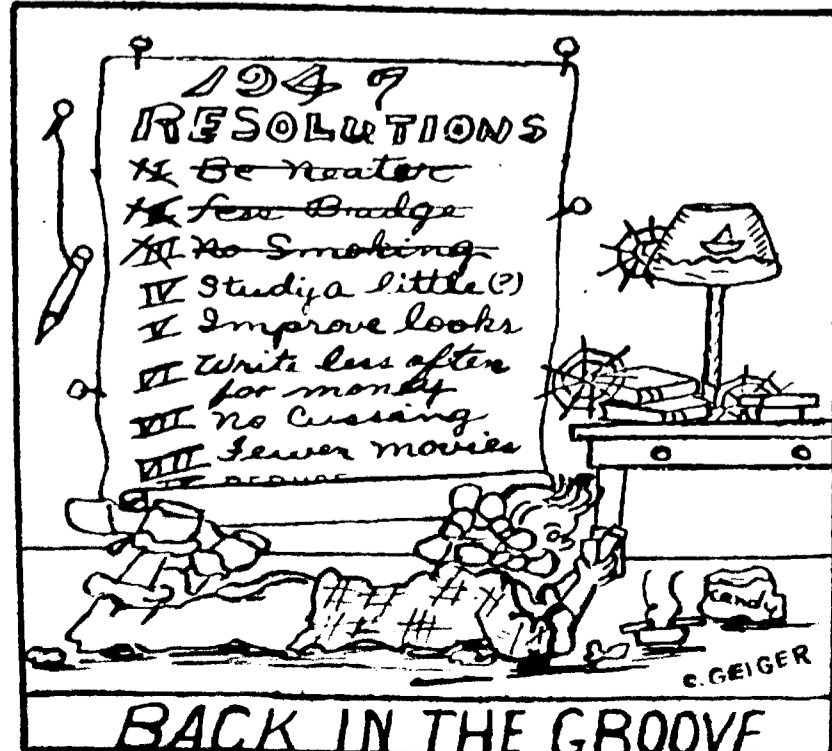 1947
RESOLUTIONS
I Be Neater
II Less Bradge
III No Smoking
IV Study a little (?)
V Improve looks
VI Write less often
for money
VII No Cussing
VIII Fewer movies
candy
C. GEIGER
BACK IN THE GROOVE